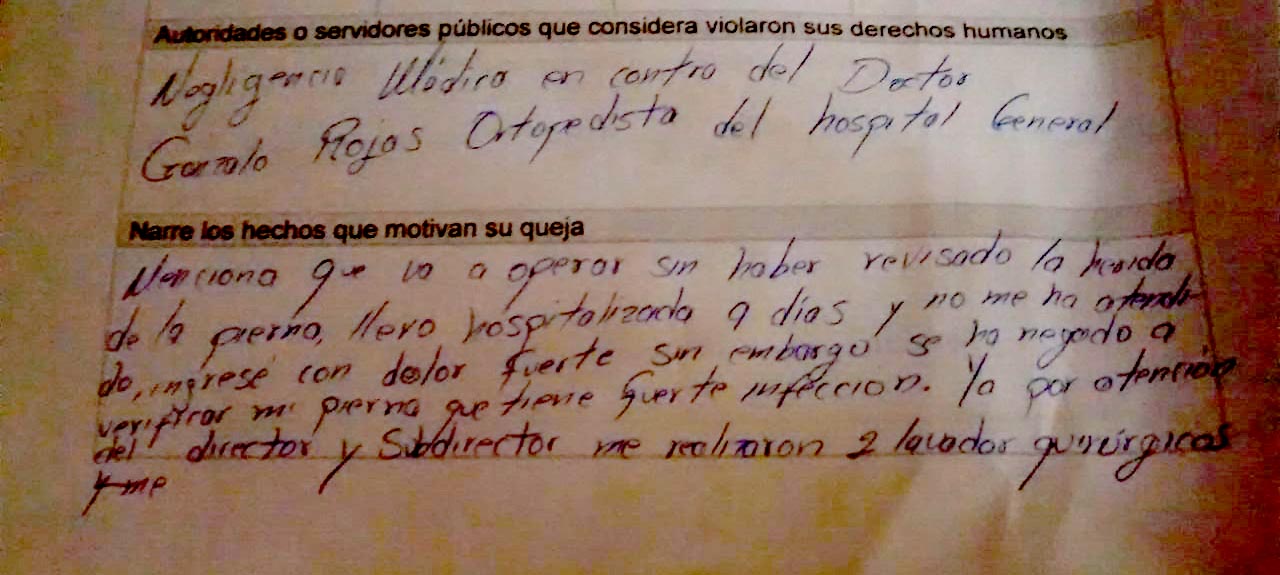 Autoridades o servidores públicos que considera violaron sus derechos humanos
Negligencia Médica en contra del Doctor
Gonzalo Rojas Ortopedista del hospital General
Narre los hechos que motivan su queja
Menciona que va a operar sin haber revisado la herida
de la pierna, llevo hospitalizada 9 días y no me ha atendi-
do, ingresé con dolor fuerte sin embargo se ha negado a
verificar mi pierna que tiene fuerte infección. Ya por atención
del director y Subdirector me realizaron 2 lavador quirúrgicos
y me